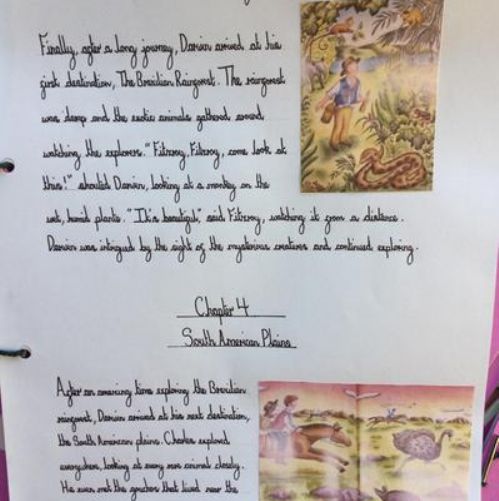 Finally, after a long journey, Darwin arrived at his
first destination, The Brazilian Rainforest. The rainforest
was damp and the exotic animals gathered around,
watching the explorers. "Fitzroy, Fitzroy, come look at
this!" shouted Darwin, looking at a monkey on the
wet, humid plants. "It's beautiful", said Fitzroy, watching it from a distance.
Darwin was intrigued by the sight of the mysterious creatures and continued exploring.
Chapter 4
South American Plains
After an amazing time exploring the Brazilian
rainforest, Darwin arrived at his next destination,
the South American plains. Charles explored
everywhere, looking at every rare animal closely.
He even met the gauchos that lived near the